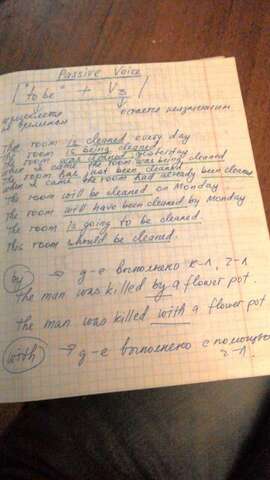 Passive Voice
"to be" + V3
изменяется остаётся неизменным
по временам
The room is cleaned every day
The room is being cleaned
The room was cleaned yesterday
when I came the room was being cleaned
The room has just been cleaned
when I came the room had already been cleaned
The room will be cleaned on Monday
The room will have been cleaned by Monday
The room is going to be cleaned.
This room should be cleaned.
by → g-e выполнено к-л, г-л
The man was killed by a flower pot.
The man was killed with a flower pot.
with → g-e выполнено с помощью
г-л.